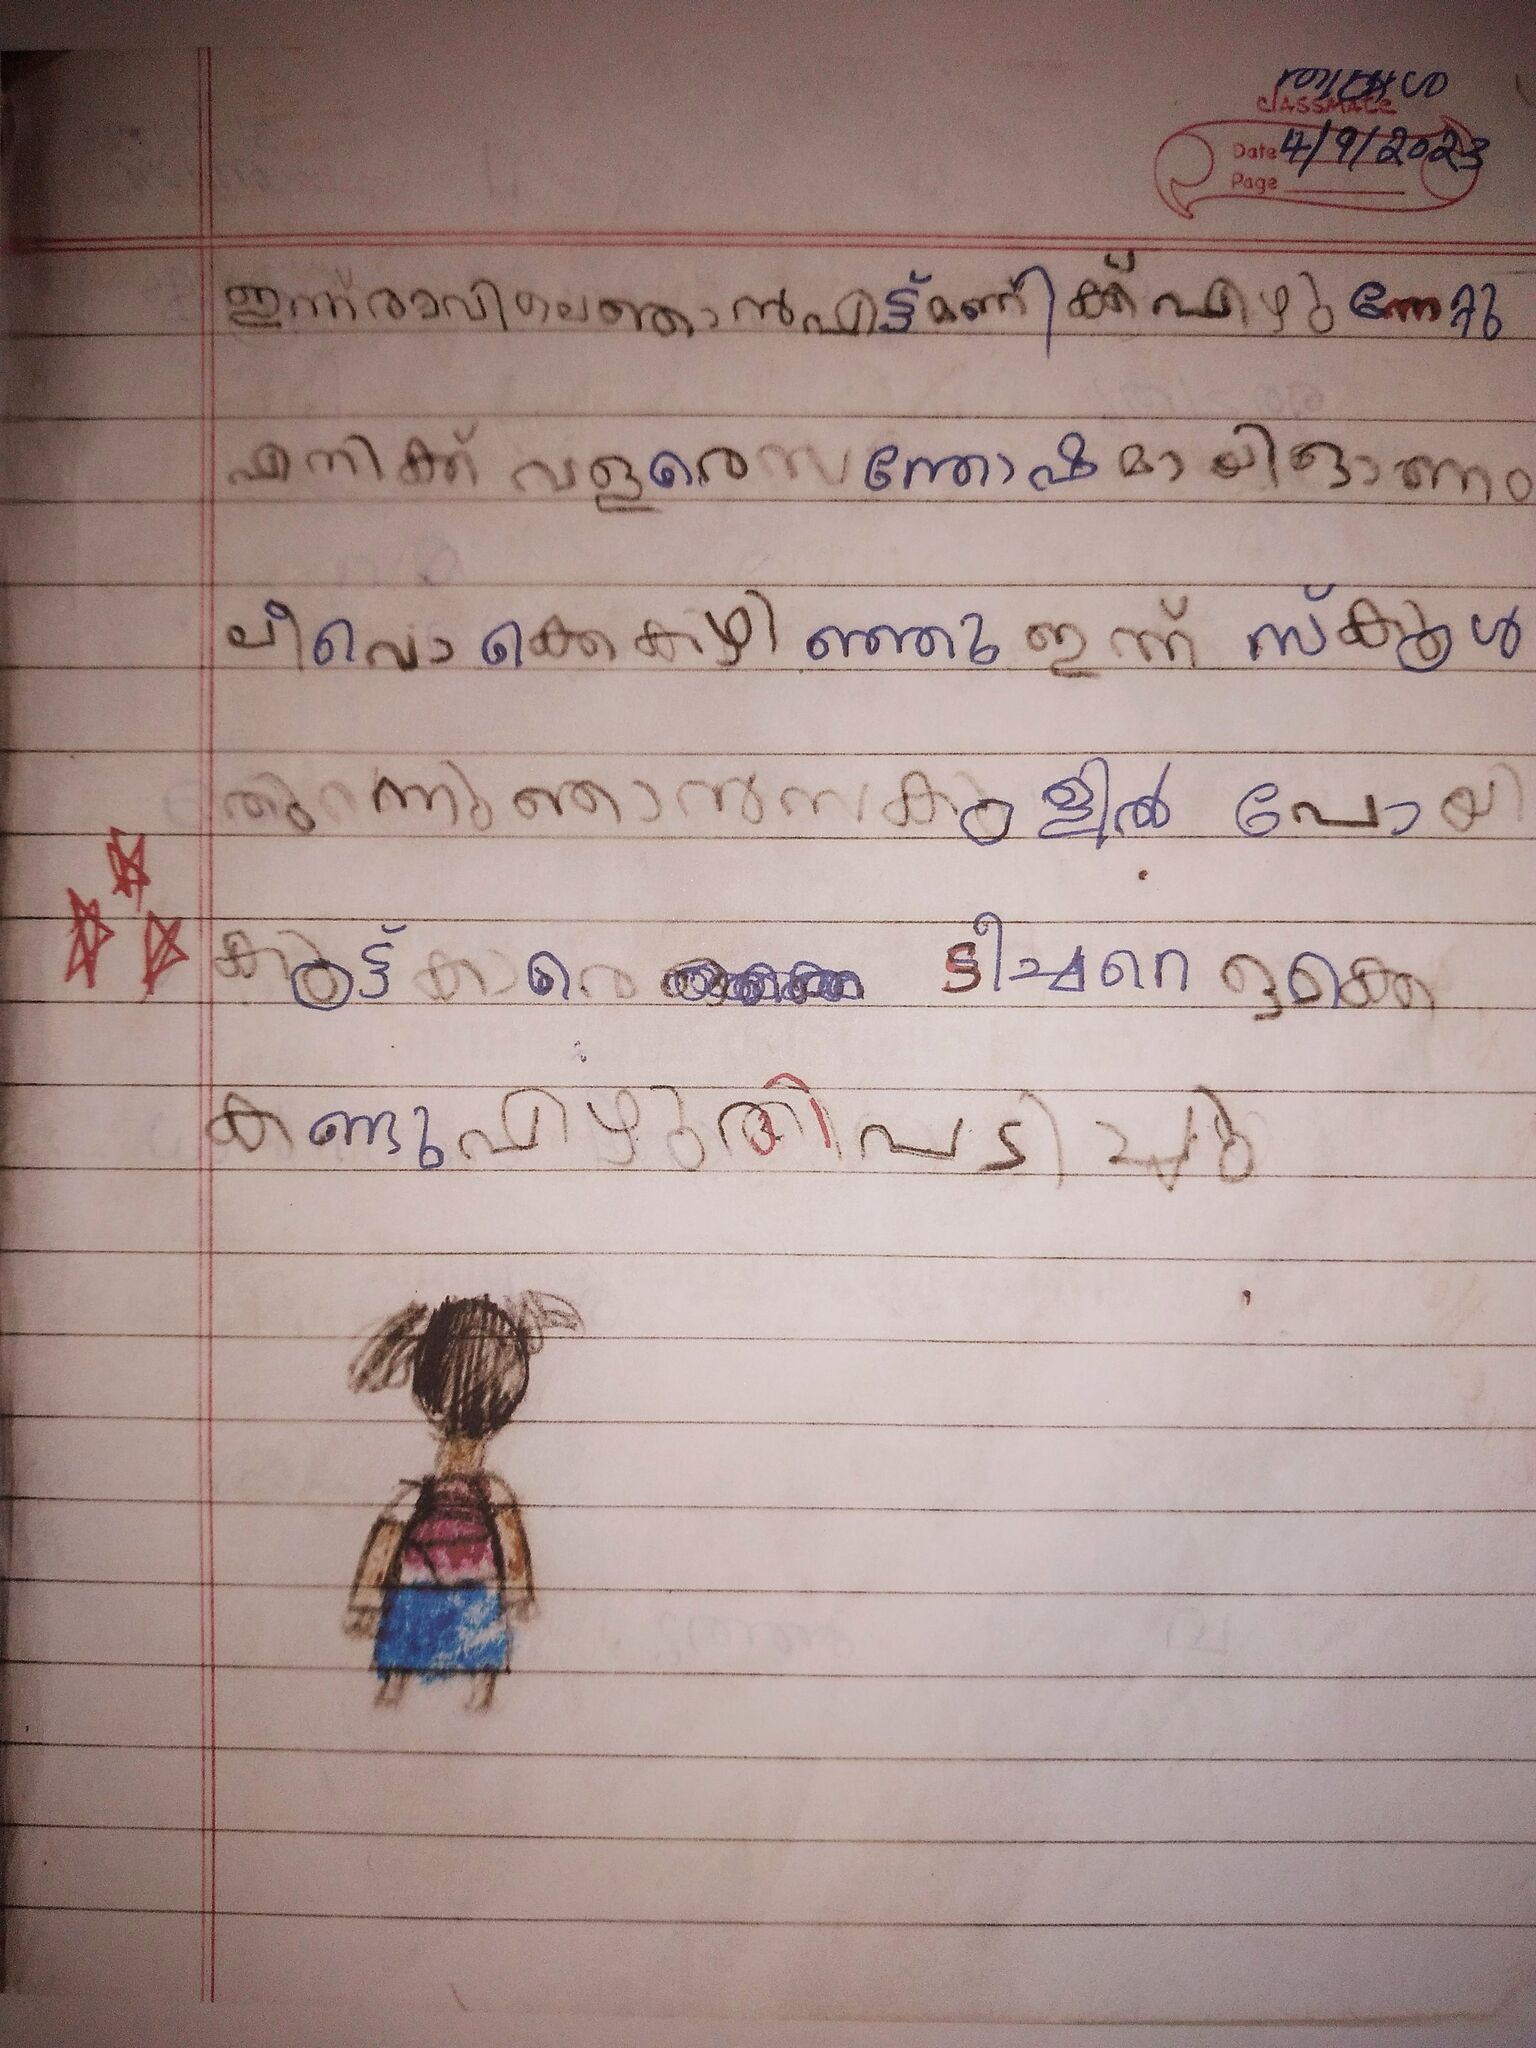 തിങ്കൾ
classmate
Date 4/9/2023
Page
ഇന്ന് രാവിലെ ഞാൻ എട്ട് മണിക്ക് എഴുന്നേറ്റു
എനിക്ക് വളരെ സന്തോഷമായി ഓണം
ലീവൊക്കെ കഴിഞ്ഞു ഇന്ന് സ്കൂൾ
തുറന്നു ഞാൻ സകൂളിൽ പോയി
കൂട്ട്കാരെ ടീച്ചറെ ഒക്കെ
കണ്ടു എഴുതി പടിച്ചു